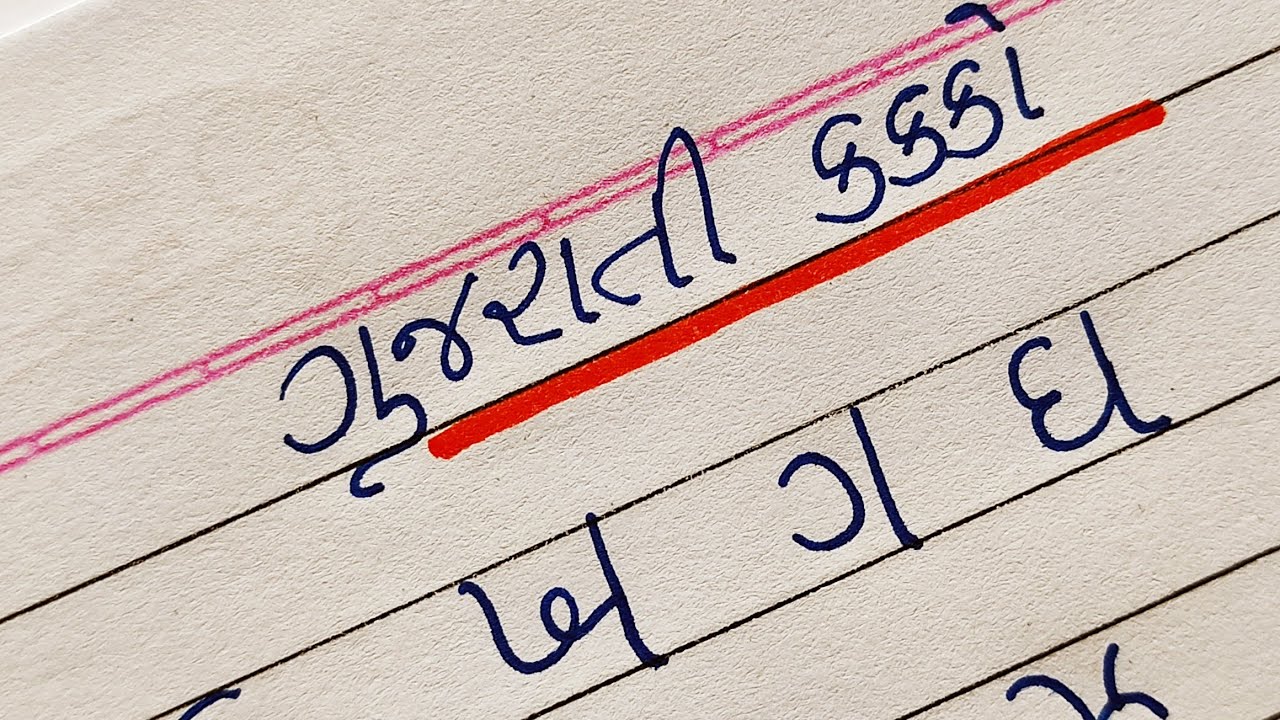 ગુજરાતી કક્કો
ખ ગ ઘ